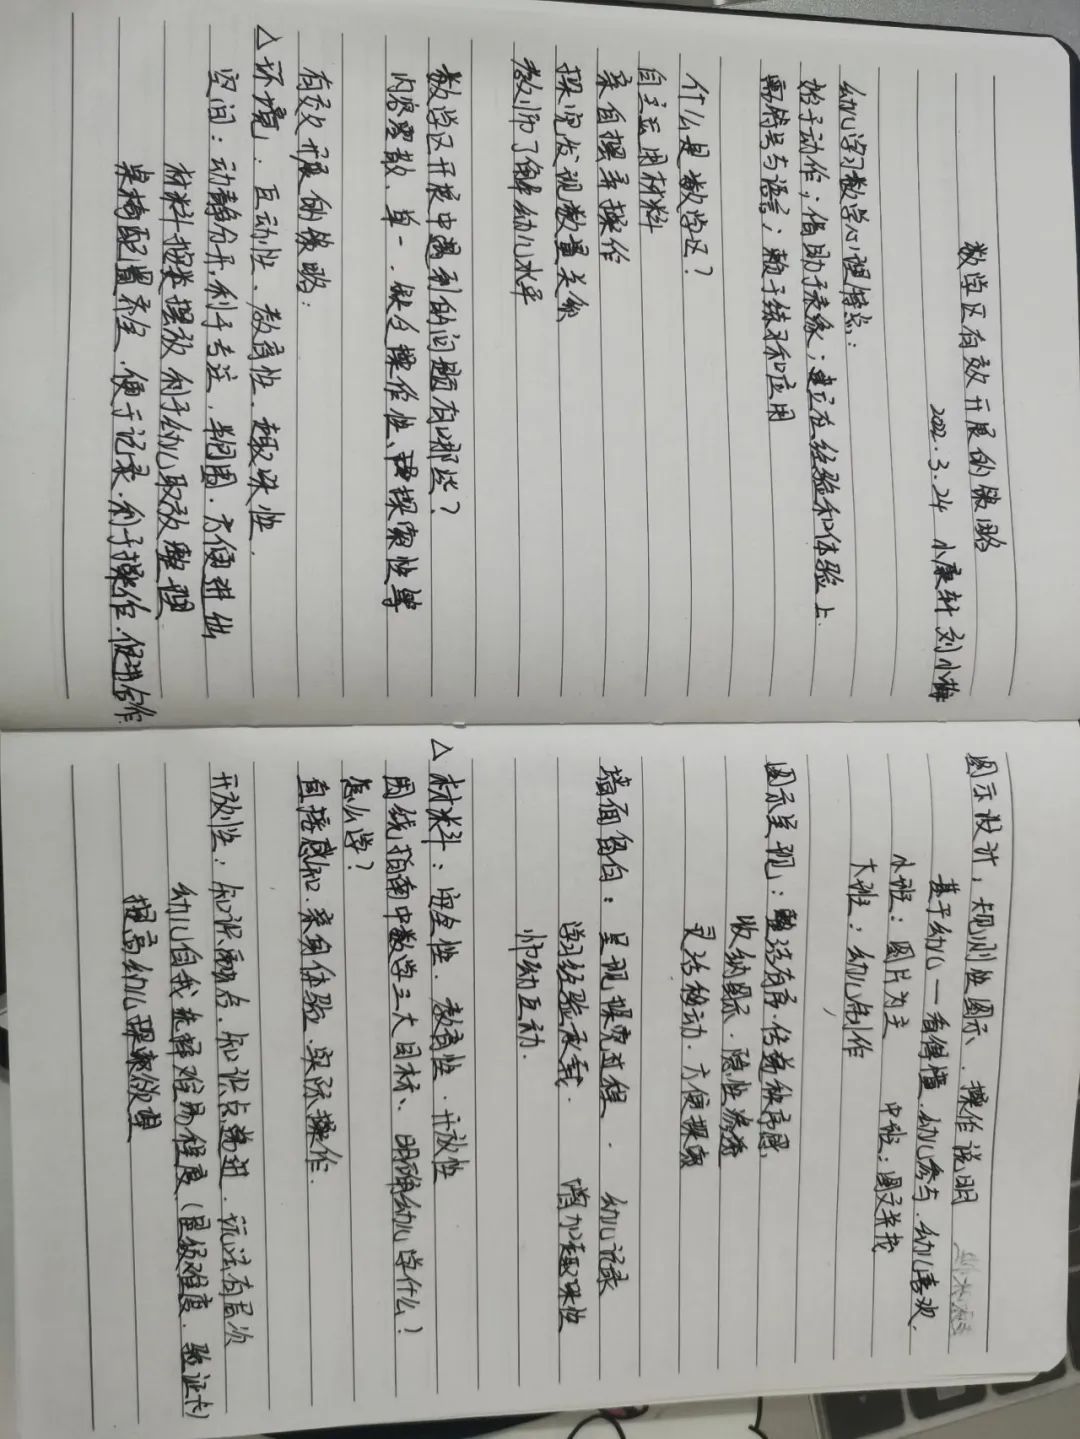 数学区有效开展的策略
2022.3.24 小康轩 刘小梅
幼儿学习数学心理特点：
始于动作；借助于表象；建立在经验和体验上
需符号与语言；赖于练习和应用
什么是数学区？
自主运用材料
亲自摆弄操作
探究发现数量关系
教师了解幼儿水平
数学区开展中遇到的问题有哪些？
内容零散、单一、缺乏操作性、探索性等
有效开展的策略：
△环境：互动性、教育性、趣味性.
空间：动静分开,利于专注,半包围.方便进出
材料按类摆放 利于幼儿取放整理
桌椅配置齐全.便于记录.利于操作.促进合作.
图示设计：规则性图示、操作说明
基于幼儿—看得懂.幼儿参与.幼儿喜欢.
小班：图片为主 中班：图文并茂
大班：幼儿制作
图示呈现：整洁有序.传递秩序感.
收纳图示.隐性
灵活移动.方便探索
墙面留白：呈现探究过程. 幼儿记录
学习经验承载. 增加趣味性
师幼互动.
△材料：安全性.教育性.开放性
围绕指南中数学三大目标、明确幼儿学什么？
怎么学？
直接感知.亲身体验.实际操作.
开放性：知识点递进.玩法有层次
幼儿自我选择难易程度(星级难度.验证卡)
提高幼儿探索欲望